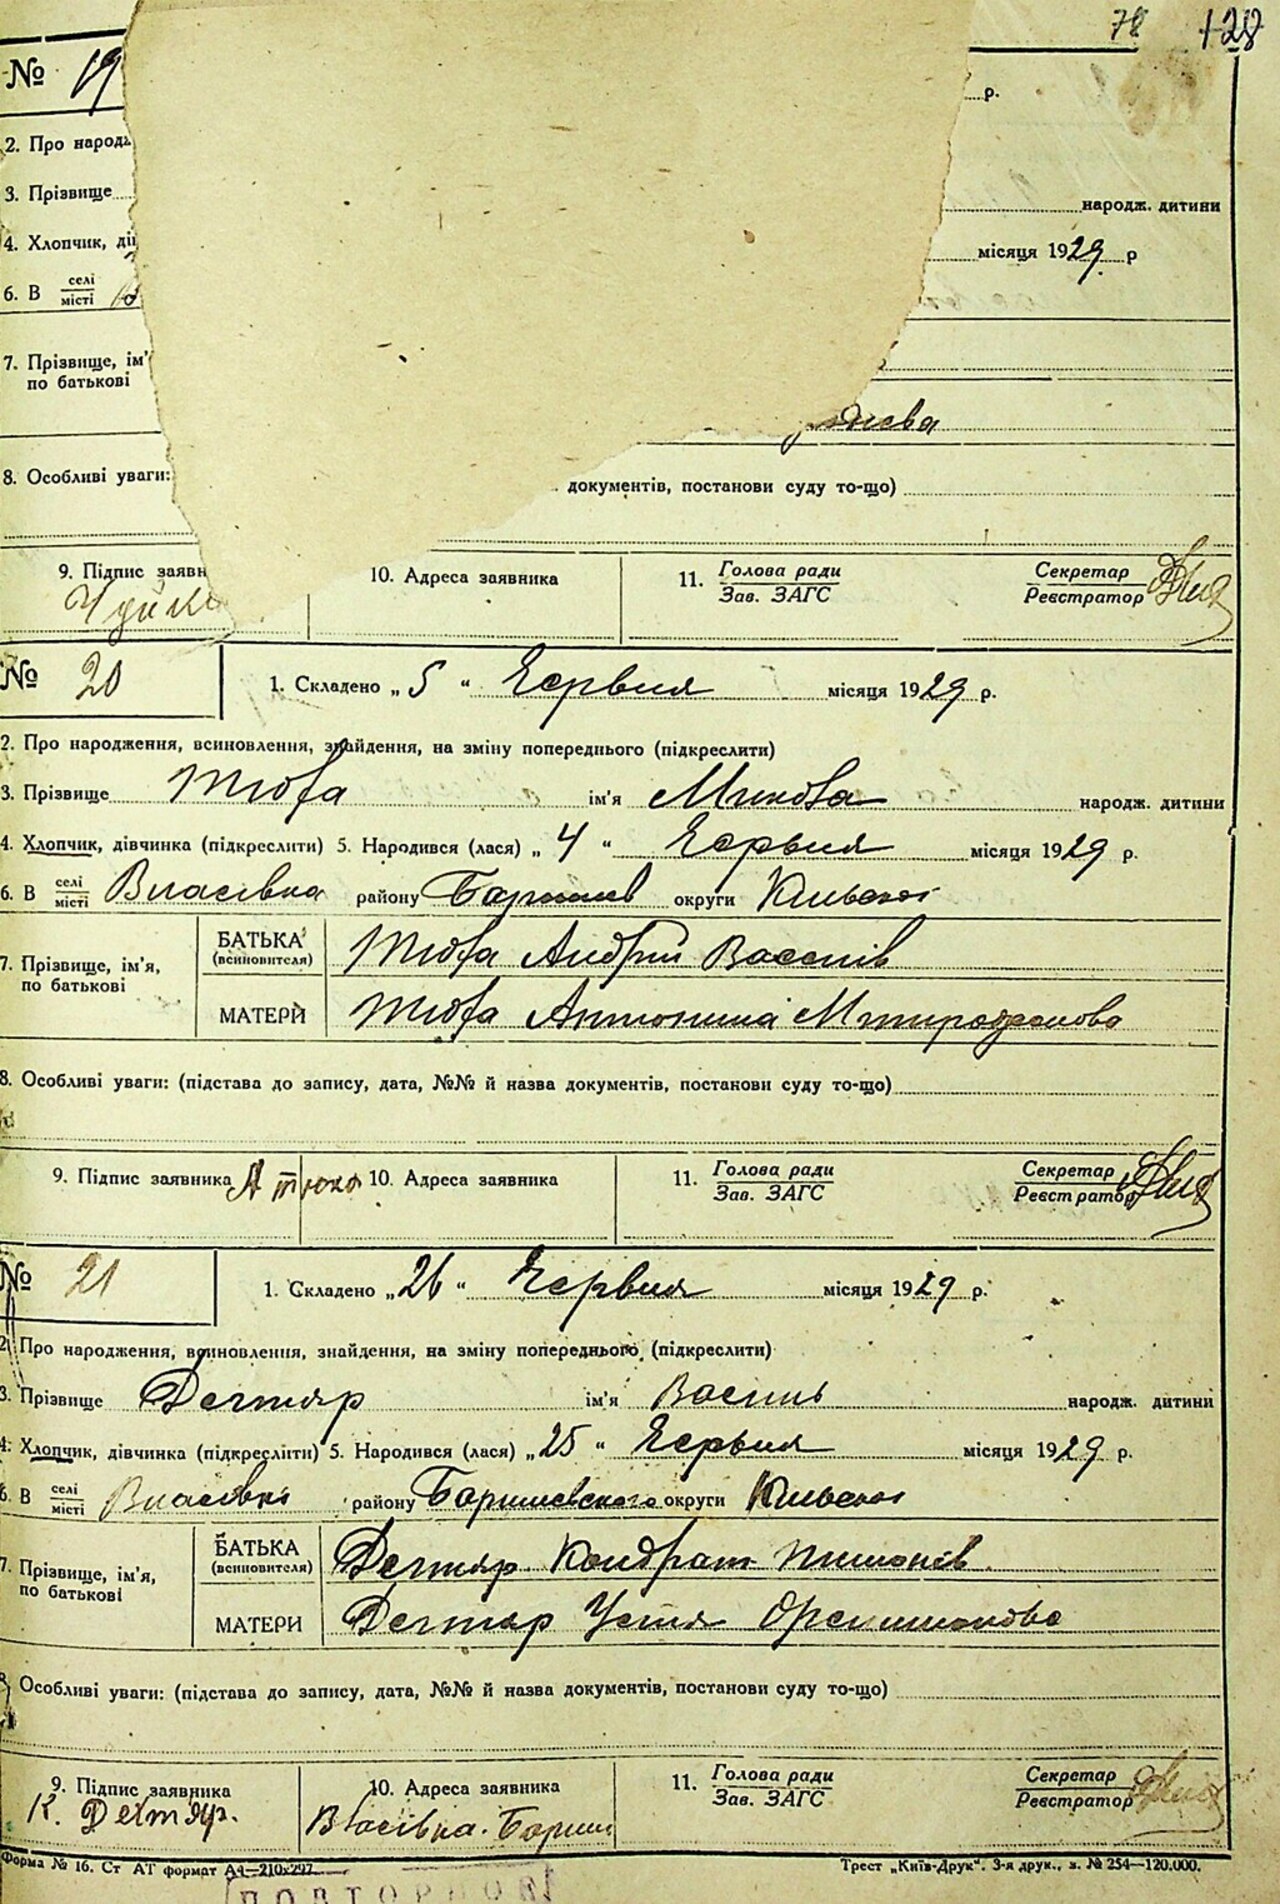 78 128
№ 19
р.
2. Про народ
3. Прізвище народж. дитини
4. Хлопчик, ді місяця 1929 р
6. В селі/місті
7. Прізвище, ім'
по батькові
8. Особливі уваги: документів, постанови суду то-що)
9. Підпис заявн 10. Адреса заявника 11. Голова ради/Зав. ЗАГС Секретар/Реєстратор
№ 20 1. Складено „5“ Червня місяця 1929 р.
2. Про народження, всиновлення, знайдення, на зміну попереднього (підкреслити)
3. Прізвище Тюта ім'я Микола народж. дитини
4. Хлопчик, дівчинка (підкреслити) 5. Народився (лася) „4“ Червня місяця 1929 р.
6. В селі/місті Власівка району Баришев округи Київської
7. Прізвище, ім'я, по батькові БАТЬКА (всиновителя) Андрій Василів
МАТЕРИ Антонина Митрофанова
8. Особливі уваги: (підстава до запису, дата, №№ й назва документів, постанови суду то-що)
9. Підпис заявника 10. Адреса заявника 11. Голова ради/Зав. ЗАГС Секретар/Реєстратор
№ 21 1. Складено „26“ Червня місяця 1929 р.
2. Про народження, всиновлення, знайдення, на зміну попереднього (підкреслити)
3. Прізвище Дегтяр ім'я Василь народж. дитини
4. Хлопчик, дівчинка (підкреслити) 5. Народився (лася) „25“ Червня місяця 1929 р.
6. В селі/місті Власівкі району Баришевского округи Київської
7. Прізвище, ім'я, по батькові БАТЬКА (всиновителя) Дегтяр Кондрат Пилипів
МАТЕРИ Дегтяр Устя
8. Особливі уваги: (підстава до запису, дата, №№ й назва документів, постанови суду то-що)
9. Підпис заявника 10. Адреса заявника 11. Голова ради/Зав. ЗАГС Секретар/Реєстратор
К. Дегтяр. Власівка. Бариш
Форма № 16. Ст АТ формат А4—210x297 Трест „Київ-Друк“. 3-я друк., з. № 254—120.000.